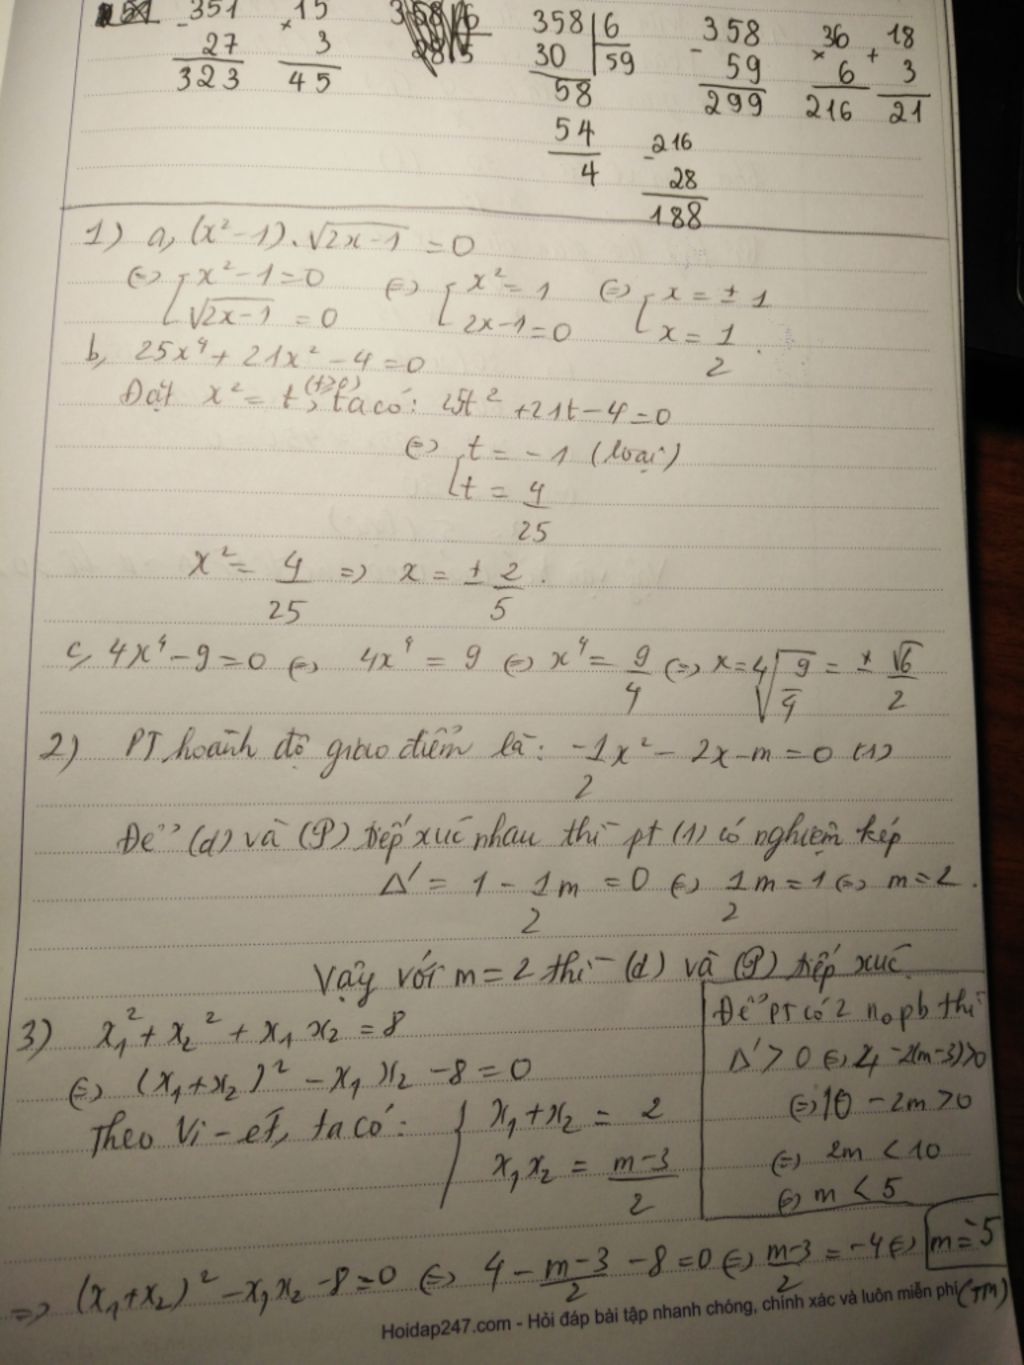 351 15 358 6 358 36 18
- 27 × 3 30 59 - 59 × 6 + 3
323 45 58 299 216 21
54 - 216
4 28
188
1) a, (x² - 1).√2x-1 = 0
(=) [x² - 1 = 0 (=) [x² = 1 (=) [x = ± 1
√2x-1 = 0 2x-1 = 0 x = 1/2.
b, 25x⁴ + 21x² - 4 = 0
Đặt x² = t, ta có: 25t² + 21t - 4 = 0
(=) [t = -1 (loại)
t = 4/25
x² = 4/25 => x = ± 2/5.
c, 4x⁴ - 9 = 0 (=) 4x⁴ = 9 (=) x⁴ = 9/4 (=) x = ⁴√9/4 = ± √6/2
2) PT hoành độ giao điểm là: -1/2x² - 2x - m = 0 (1)
Để (d) và (P) tiếp xúc nhau thì pt (1) có nghiệm kép
Δ' = 1 - 1/2m = 0 (=) 1/2m = 1 (=) m = 2.
Vậy với m = 2 thì (d) và (P) tiếp xúc.
3) x₁² + x₂² + x₁x₂ = 8
(=) (x₁+x₂)² - x₁x₂ - 8 = 0
Theo Vi-ét, ta có: {x₁+x₂ = 2
x₁x₂ = m-3/2
Để PT có 2 nₒ pb thì
Δ' > 0 (=) 4 - 2(m-3) > 0
(=) 10 - 2m > 0
(=) 2m < 10
(=) m < 5
=> (x₁+x₂)² - x₁x₂ - 8 = 0 (=) 4 - m-3/2 - 8 = 0 (=) m-3/2 = -4 (=) m = -5
(TM)
Hoidap247.com - Hỏi đáp bài tập nhanh chóng, chính xác và luôn miễn phí